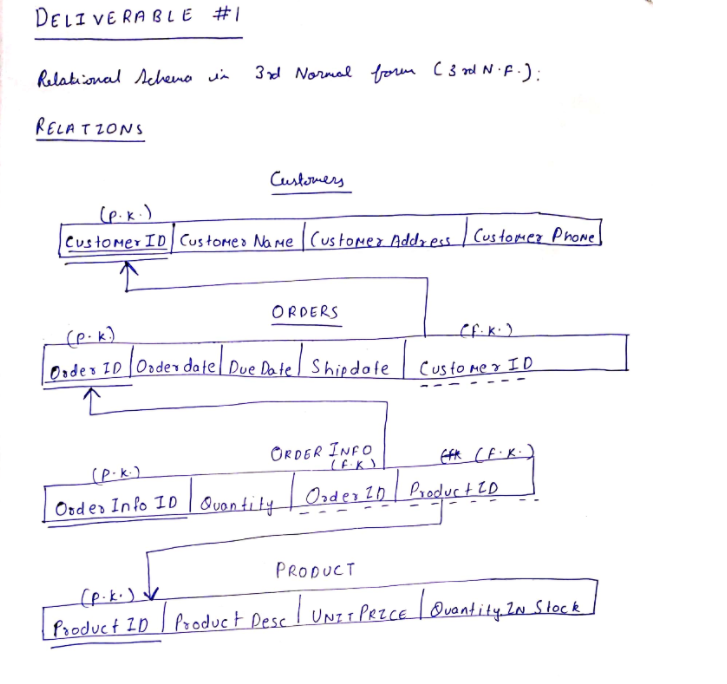 DELIVERABLE #1
Relational Schema in 3rd Normal form (3rd N.F.):
RELATIONS
Customers
(P.K.)
Customer ID Customer Name Customer Address Customer Phone
ORDERS
(P.K) (F.K.)
Order ID Order date Due Date Shipdate Customer ID
ORDER INFO
(P.K.) (F.K) (F.K.)
Order Info ID Quantity Order ID Product ID
PRODUCT
(P.K.)
Product ID Product Desc UNIT PRICE Quantity IN Stock